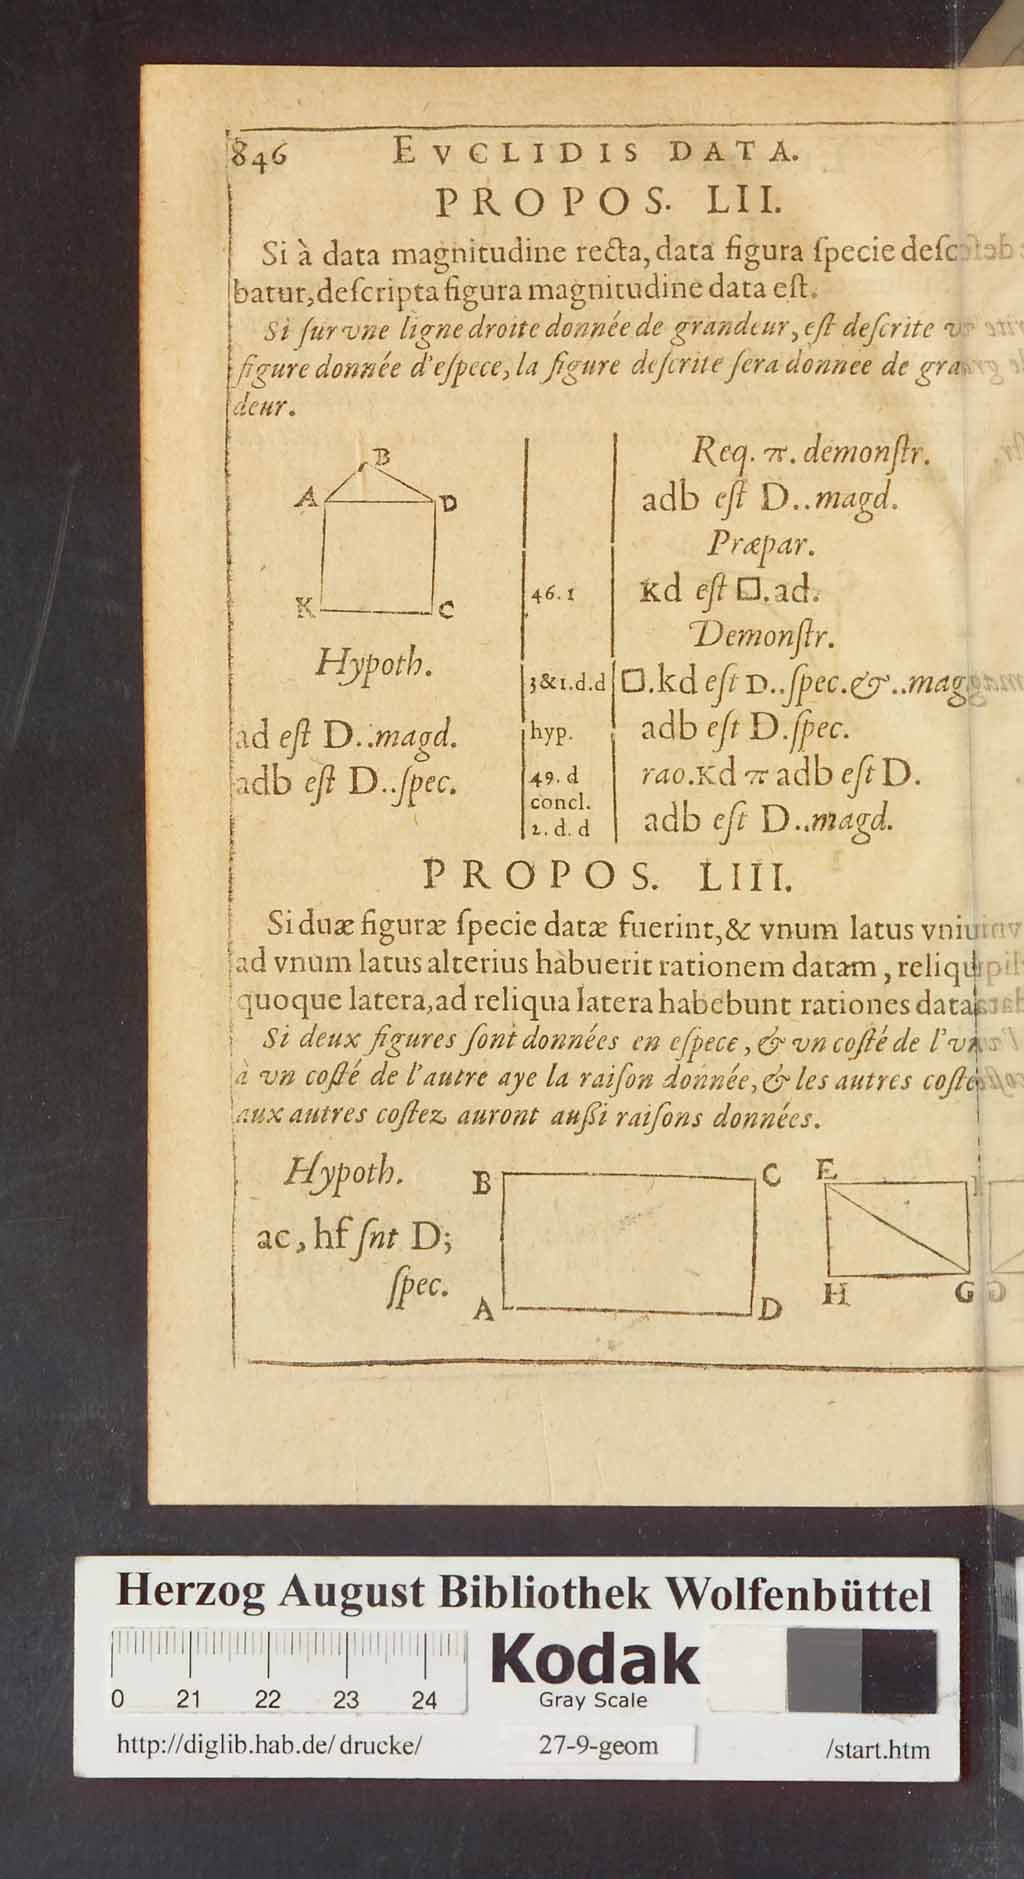 846 EVCLIDIS DATA.
PROPOS. LII.
Si à data magnitudine recta, data figura ſpecie deſc
batur, deſcripta figura magnitudine data eſt.
Si ſur vne ligne droite donnée de grandeur, eſt deſcrite
figure donnée d'eſpece, la figure deſcrite ſera donnee de gra
deur.
B
A D
K C
Hypoth.
ad eſt D..magd.
adb eſt D..ſpec.
Req. π. demonſtr.
adb eſt D..magd.
Præpar.
46. 1 Kd eſt □.ad.
Demonſtr.
3&1.d.d □.kd eſt D..ſpec.&..mag
hyp. adb eſt D.ſpec.
49. d rao.Kd π adb eſt D.
concl.
2. d. d adb eſt D..magd.
PROPOS. LIII.
Si duæ figuræ ſpecie datæ fuerint, & vnum latus vniu
ad vnum latus alterius habuerit rationem datam, reliqu
quoque latera, ad reliqua latera habebunt rationes data
Si deux figures ſont données en eſpece, & vn coſté de l'vn
à vn coſté de l'autre aye la raiſon donnée, & les autres coſte
aux autres coſtez auront auſſi raiſons données.
Hypoth.
ac, hf ſnt D;
ſpec.
B C
A D
E
H G
Herzog August Bibliothek Wolfenbüttel
0 21 22 23 24
Kodak
Gray Scale
http://diglib.hab.de/drucke/ 27-9-geom /start.htm